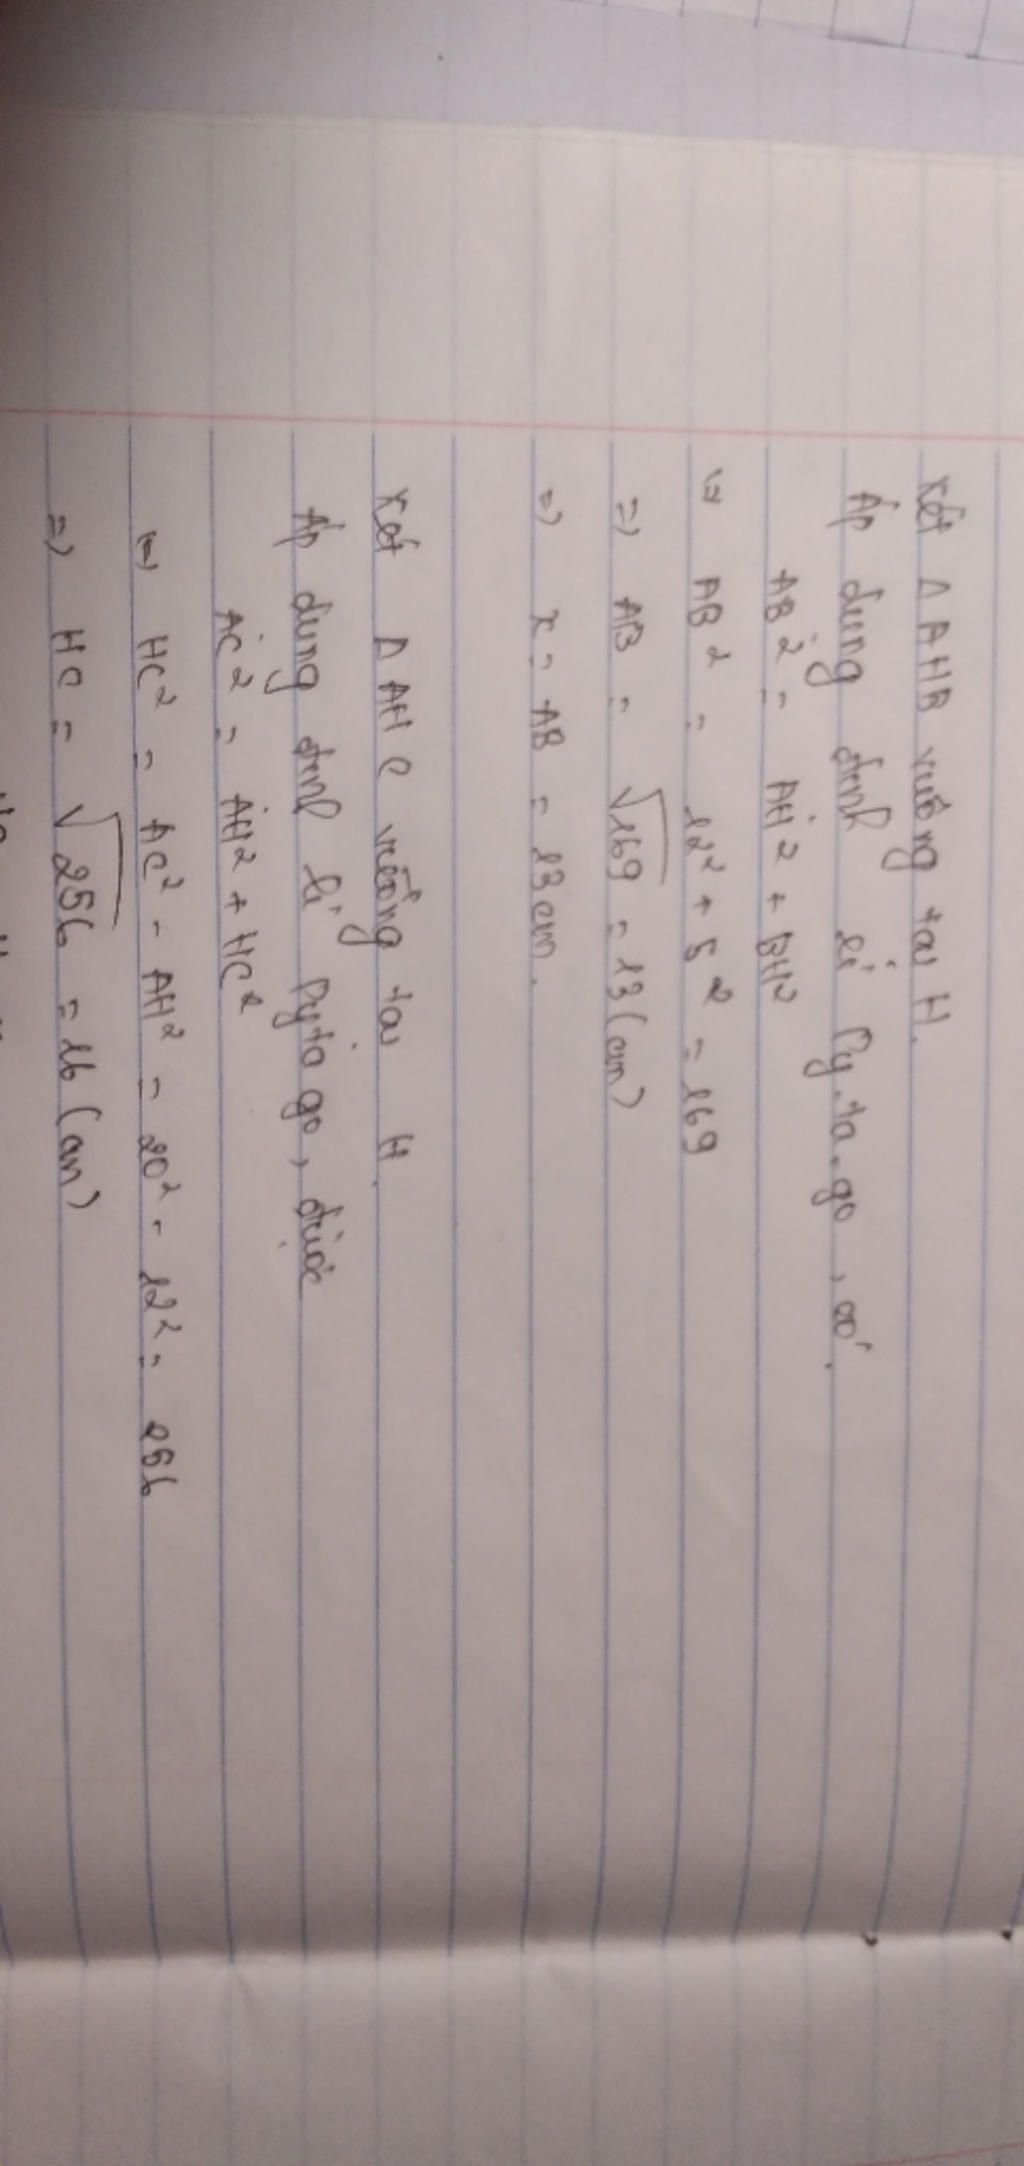 Xét Δ AHB vuông tại H.
Áp dụng định lí Py-ta-go, có
AB² = AH² + BH²
(=) AB² = 12² + 5² = 169
=) AB = √169 = 13 (cm)
=) x = AB = 13 cm.
Xét Δ AHC vuông tại H.
Áp dụng định lí Pytago, được
AC² = AH² + HC²
(=) HC² = AC² - AH² = 20² - 12² = 256
=) HC = √256 = 16 (cm)